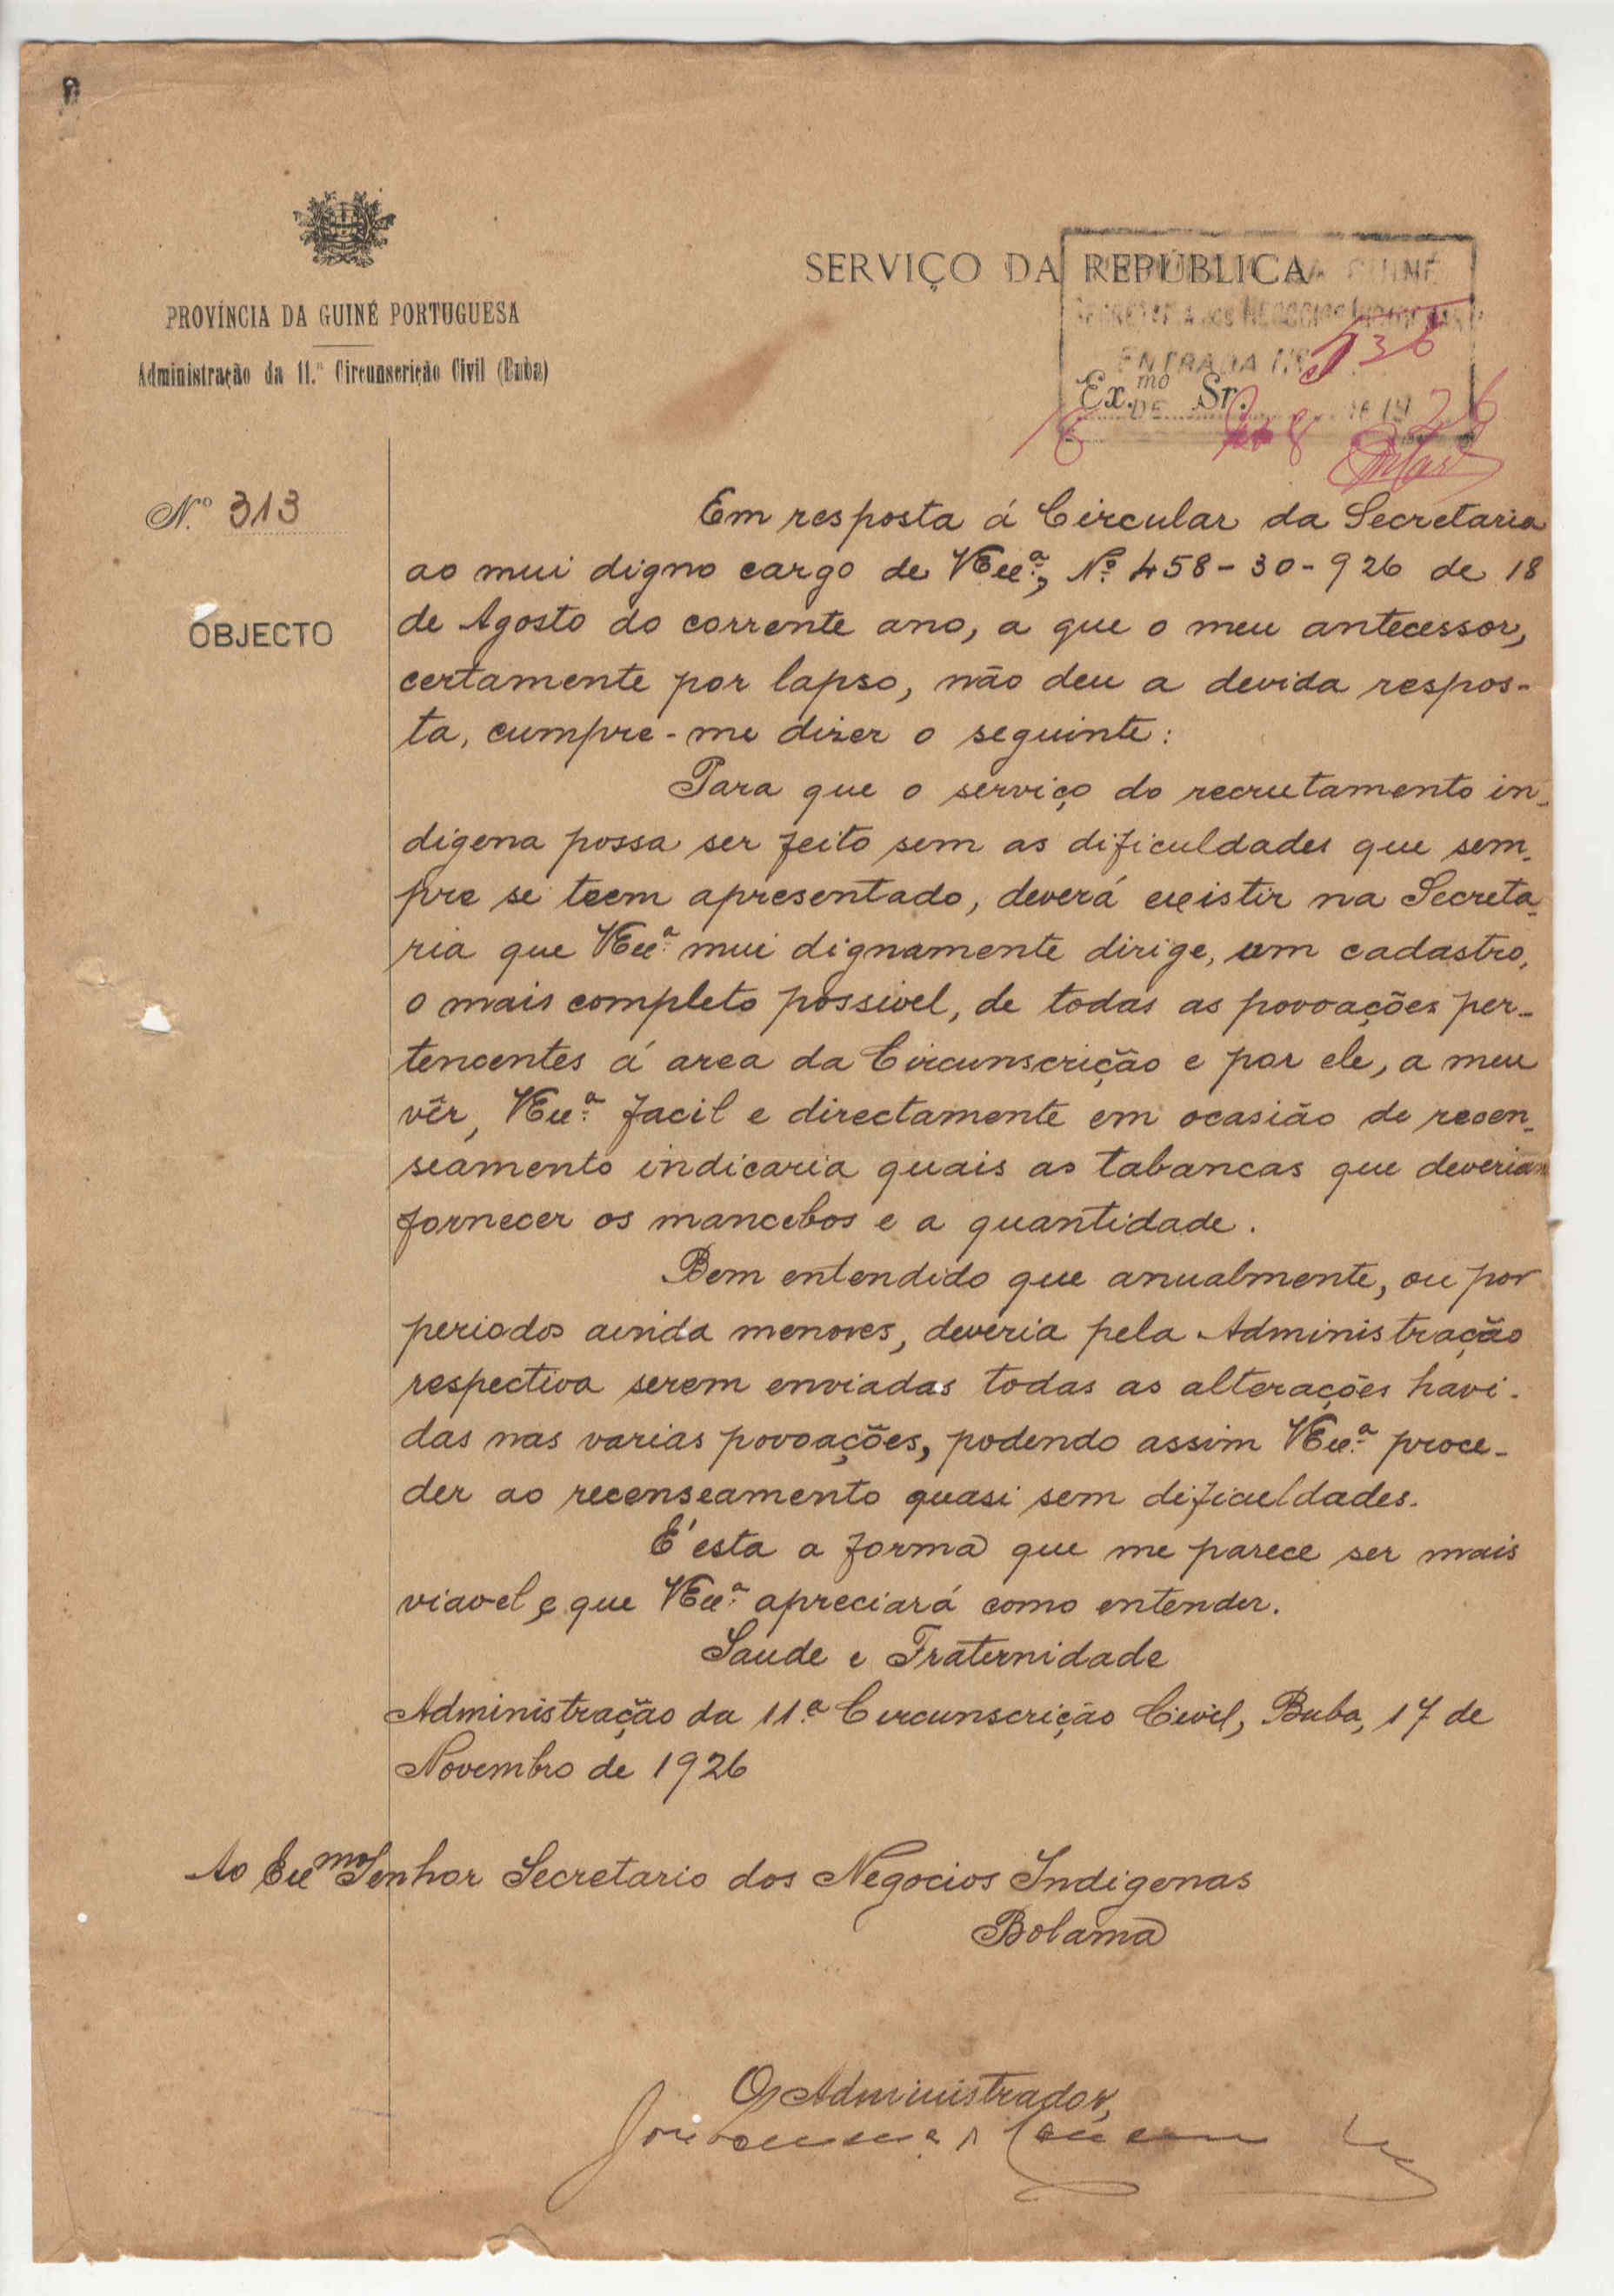 SERVIÇO DA REPÚBLICA
PROVÍNCIA DA GUINÉ PORTUGUESA
Administração da 11.ª Circunscrição Civil (Buba)
GUINÉ
SECRETARIA DOS NEGOCIOS INDIGENAS
ENTRADA Nº 536
Ex.mo Sr.
DE
18 8 DE 1926
N.º 313
OBJECTO
Em resposta á Circular da Secretaria
ao mui digno cargo de VExª, Nº 458-30-926 de 18
de Agosto do corrente ano, a que o meu antecessor,
certamente por lapso, não deu a devida respos-
ta, cumpre-me dizer o seguinte:
Para que o serviço do recrutamento in-
digena possa ser feito sem as dificuldades que sem-
pre se teem apresentado, deverá existir na Secreta-
ria que VExª mui dignamente dirige, um cadastro,
o mais completo possivel, de todas as povoações per-
tencentes á area da Circunscrição e por ele, a meu
vêr, VExª facil e directamente em ocasião de recen-
seamento indicaria quais as tabancas que deveriam
fornecer os mancebos e a quantidade.
Bem entendido que anualmente, ou por
periodos ainda menores, deveria pela Administração
respectiva serem enviadas todas as alterações havi-
das nas varias povoações, podendo assim VExª proce-
der ao recenseamento quasi sem dificuldades.
É esta a forma que me parece ser mais
viavel e que VExª apreciará como entender.
Saude e Fraternidade
Administração da 11ª Circunscrição Civil, Buba, 17 de
Novembro de 1926
Ao Exmo Senhor Secretario dos Negocios Indigenas
Bolama
O Administrador,